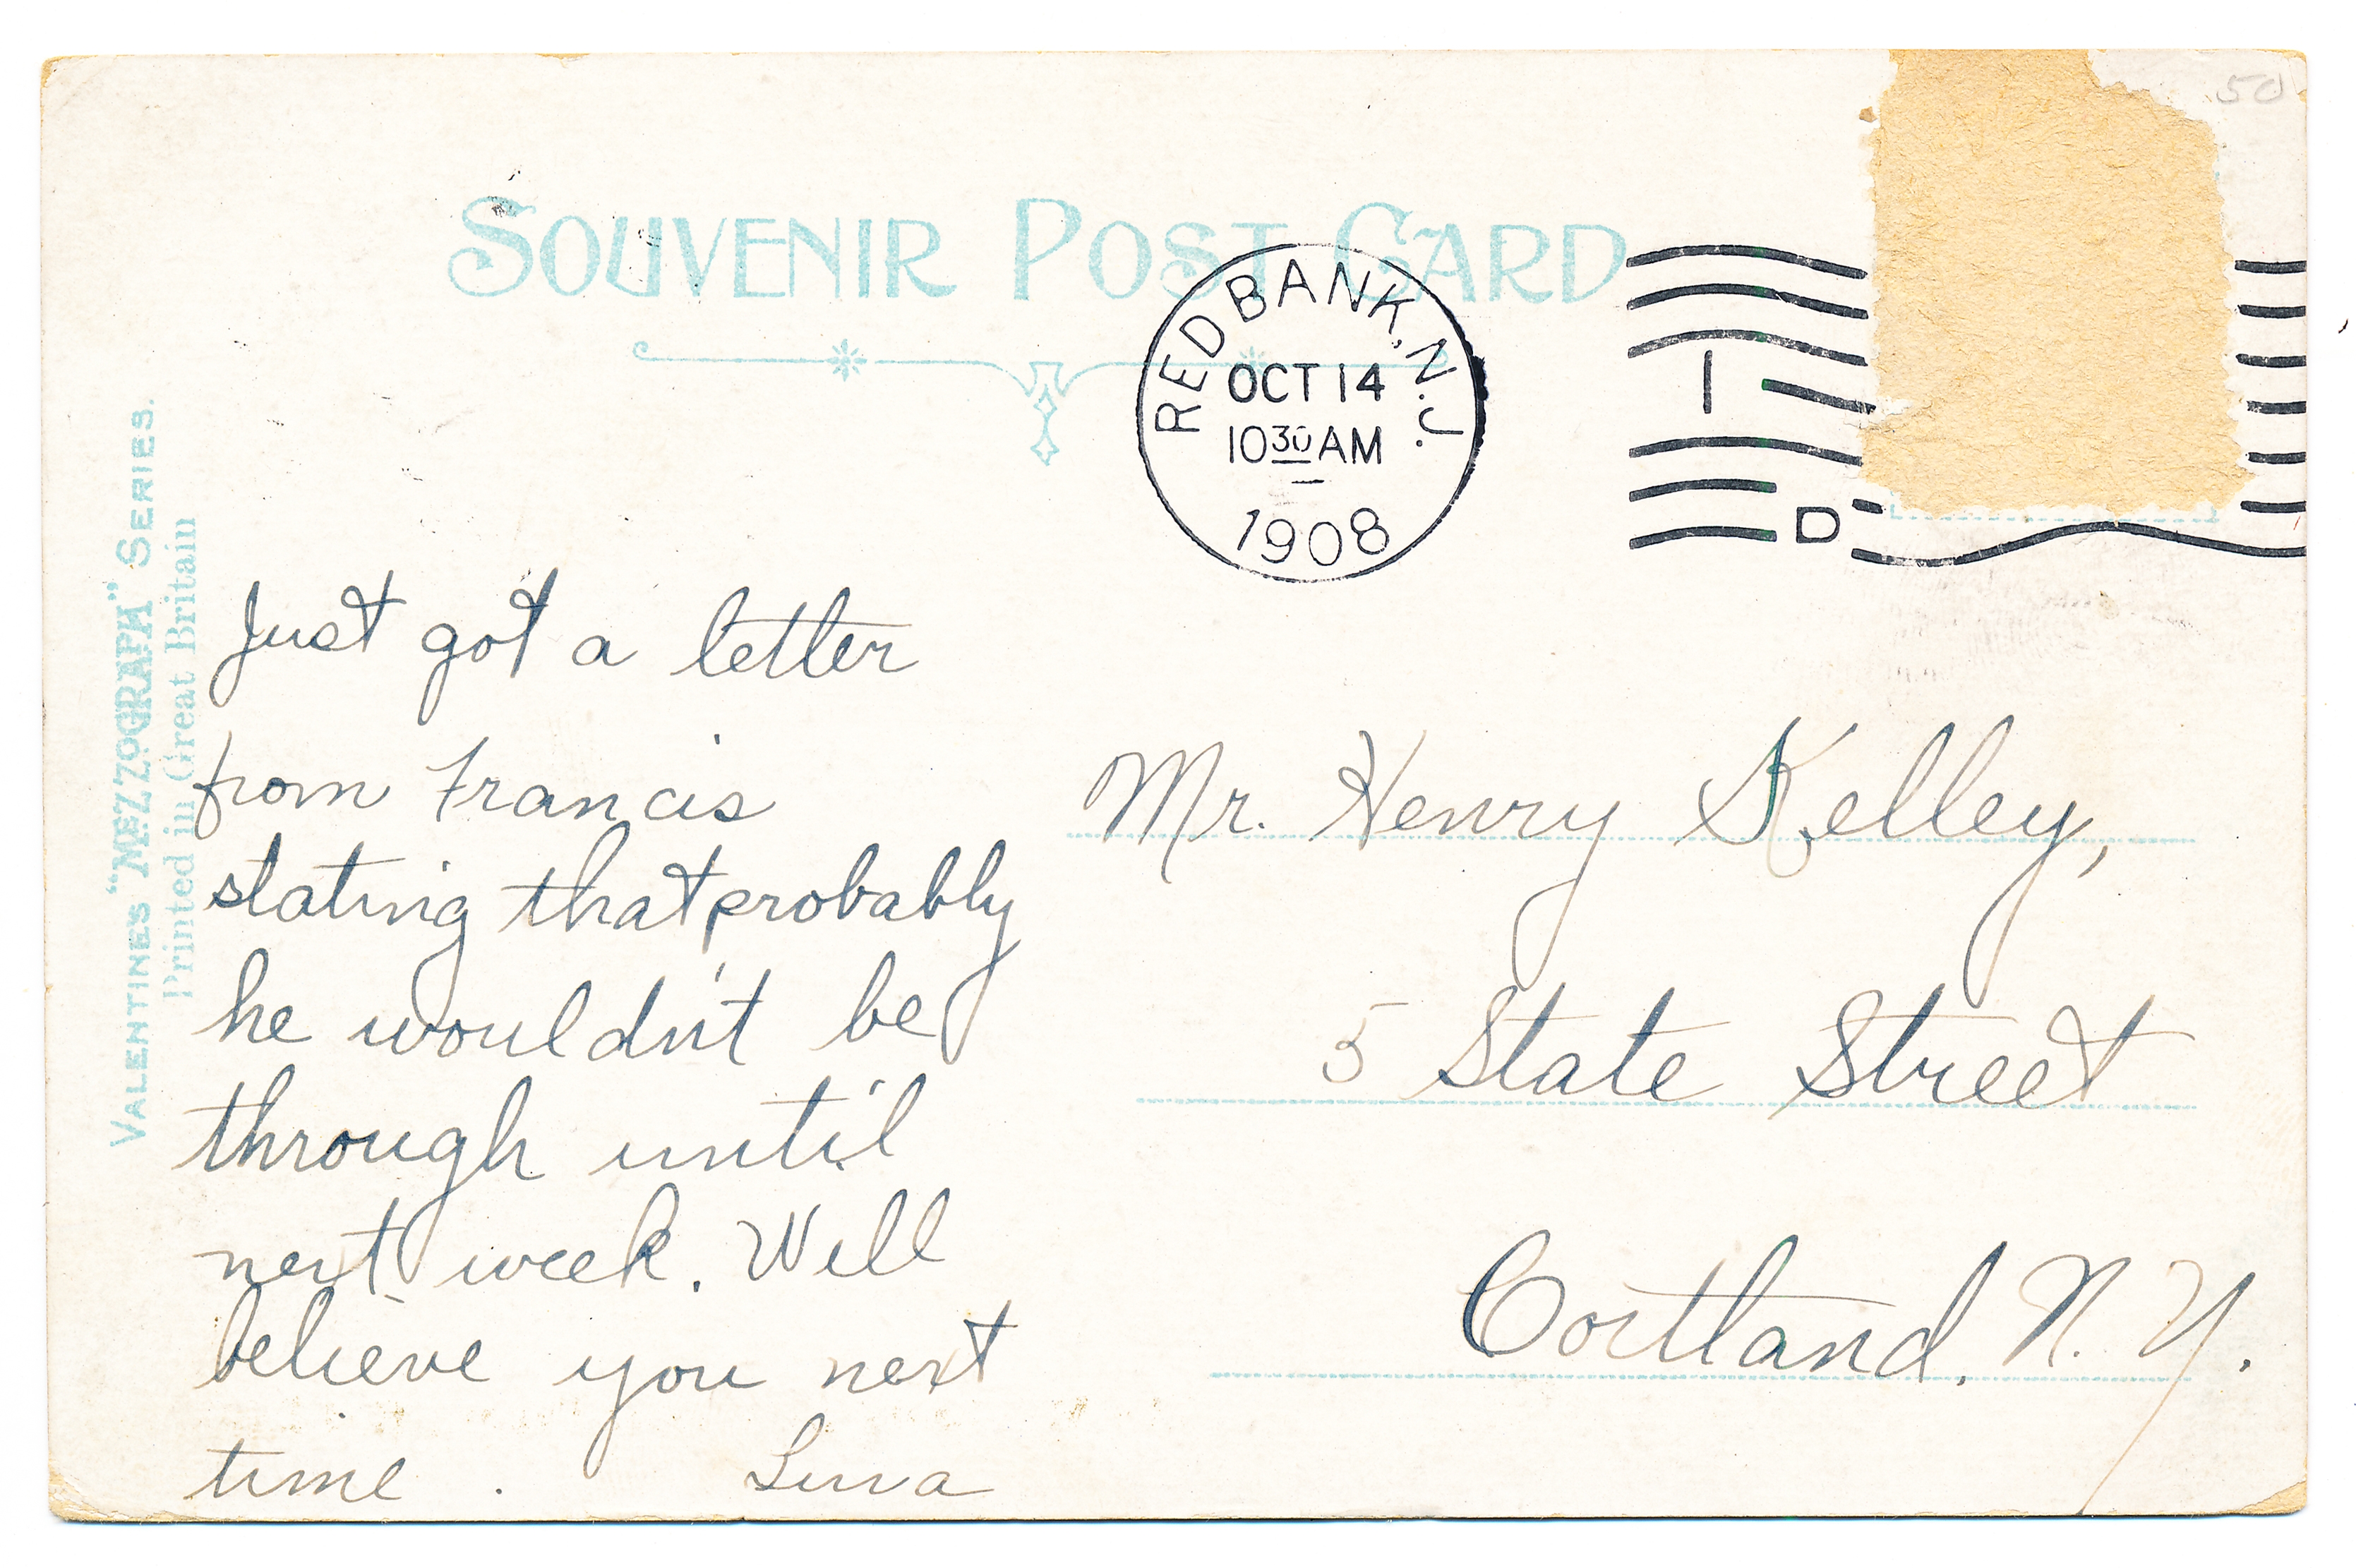 50
SOUVENIR POST CARD
RED BANK, N.J.
OCT 14
10 30 AM
1908
1
D
VALENTINE'S "MEZZOGRAPH" SERIES.
Printed in Great Britain
Just got a letter
from Francis
stating that probably
he wouldn't be
through until
next week. Will
believe you next
time.
Mr. Henry Kelley,
5 State Street
Cortland, N. Y.